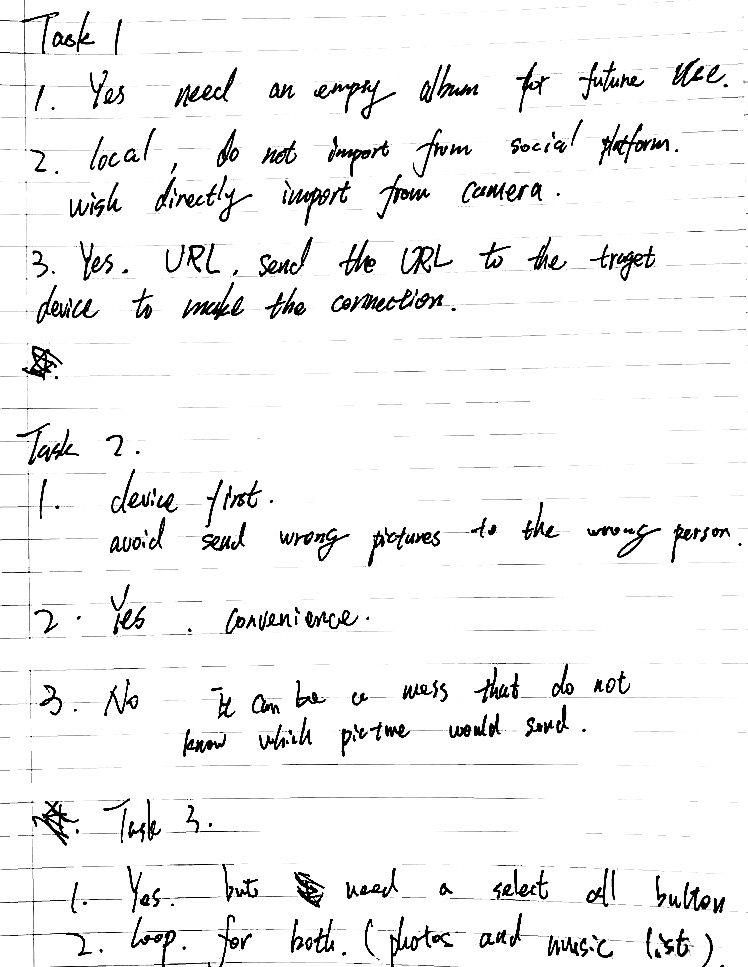 Task 1
1. Yes need an empty album for future use.
2. local, do not import from social platform.
wish directly import from camera.
3. Yes. URL. send the URL to the traget
device to make the connection.
Task 2.
1. device first.
avoid send wrong pictures to the wrong person.
2. Yes. convenience.
3. No It can be a mess that do not
know which picture would send.
Task 3.
1. Yes. but need a select all button
2. loop. for both. (photos and music list)